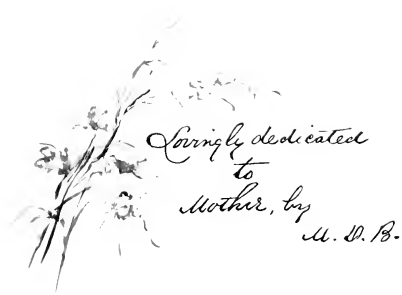 Lovingly dedicated
to
Mother, by
M. D. B.